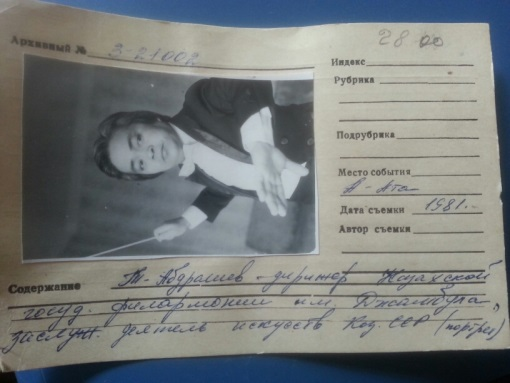 28.00
Архивный № 3-21002
Индекс
Рубрика
Подрубрика
Место события
А-Ата
Дата съемки 1981.-
Автор съемки
Содержание Т. Абдрашев - дирижер Казахской
госуд. филармонии им. Джамбула,
заслуж. деятель искусств Каз. ССР (портрет)